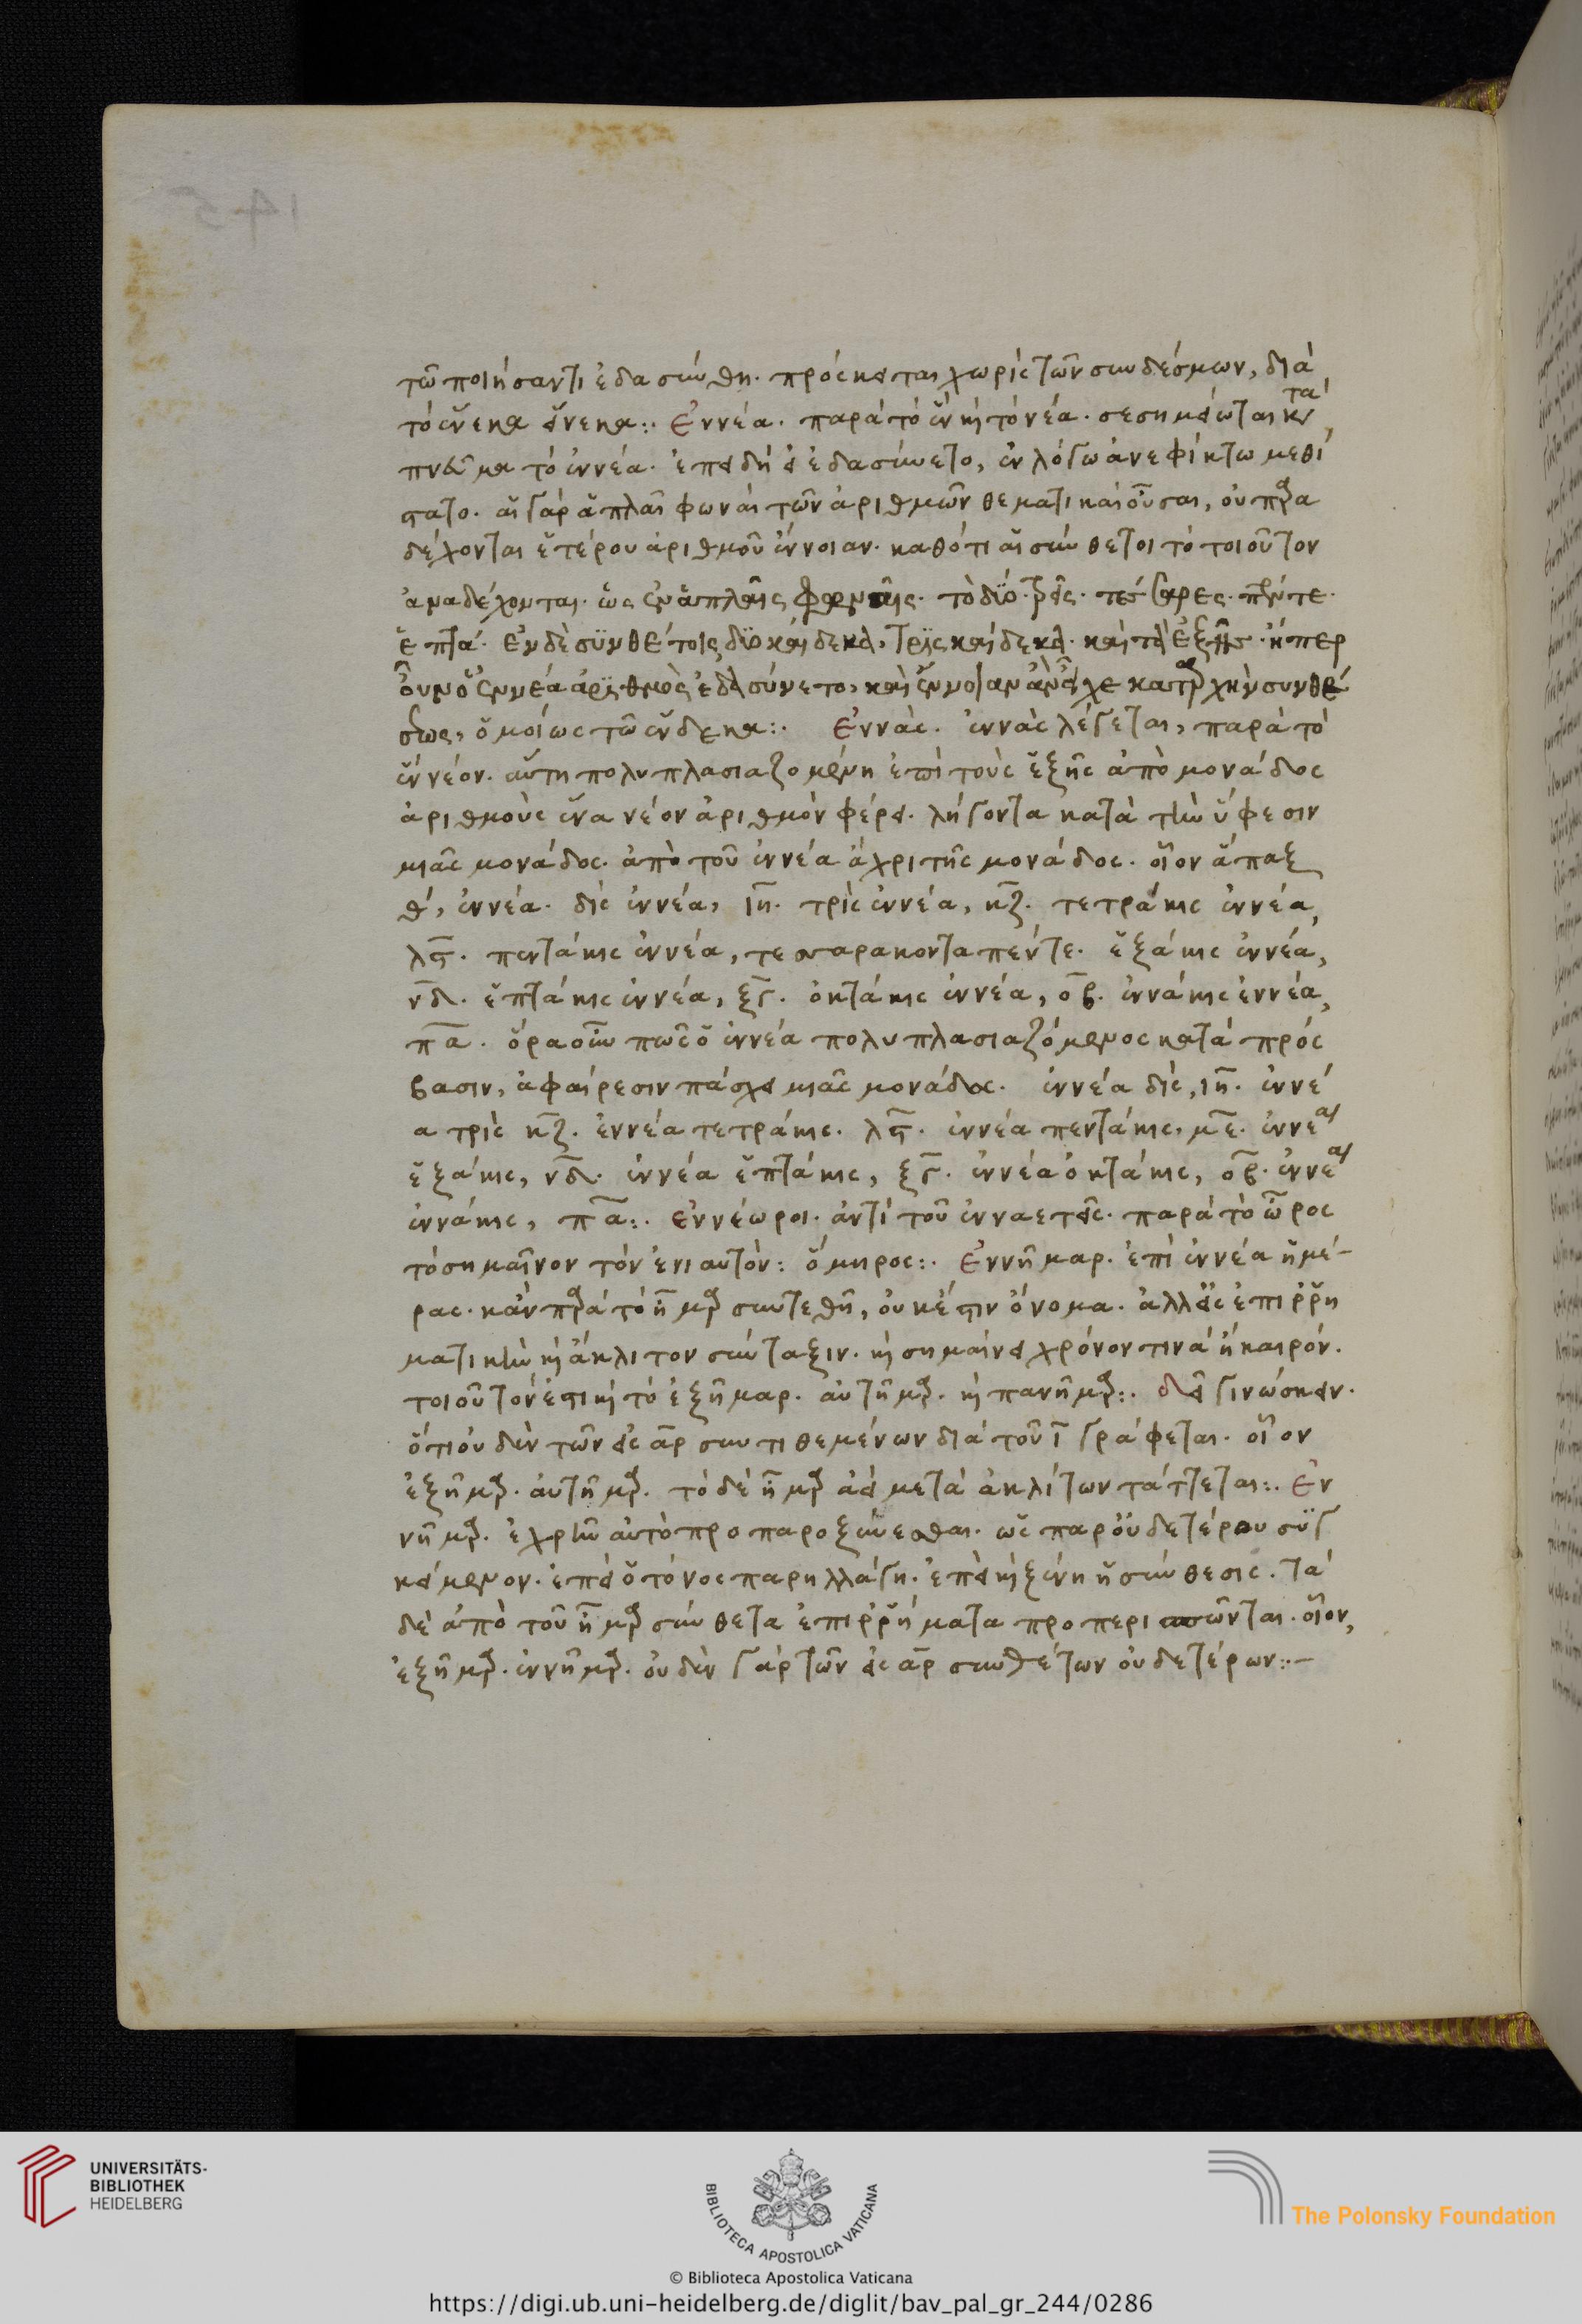 τῶ ποιήσαντι ἐδασύνθη. πρόσκειται χωρὶς τῶν συνδέσμων, διὰ
τὸ ἕνεκα εἵνεκα:. Ἐννέα. παρὰ τὸ ἓν καὶ τὸ νέα. σεσημείωται κατὰ
πνεῦμα τὸ ἐννέα. ἐπειδὴ εἰ ἐδασύνετο, ἐν λόγω ἀνεφίκτω μεθί
στατο. αἱ γὰρ ἁπλαῖ φωναὶ τῶν ἀριθμῶν θεματικαὶ οὖσαι, οὐ παρα
δέχονται ἑτέρου ἀριθμοῦ ἔννοιαν. καθότι αἱ σύνθετοι τὸ τοιοῦτον
ἀναδέχονται. ὡς ἐν ἁπλαῖς φωναῖς. τὸ δύο. τρεῖς. τέσσαρες. πέντε.
ἑπτά. ἐν δὲ συνθέτοις δυοκαίδεκα, τρισκαίδεκα. καὶ τὰ ἑξῆς. εἴπερ
οὖν ὁ ἐννέα ἀριθμὸς ἐδασύνετο, καὶ ἔννοιαν ἂν εἶχε κατ' ἀρχὴν συνθέ
σεως, ὁμοίως τῶ ἕνδεκα:. Ἐννὰς. ἐννὰς λέγεται, παρὰ τὸ
ἓν νέον. αὕτη πολυπλασιαζομένη ἐπὶ τοὺς ἑξῆς ἀπὸ μονάδος
ἀριθμοὺς ἕνα νέον ἀριθμὸν φέρει. λήγοντα κατὰ τὴν ὕφεσιν
μιᾶς μονάδος. ἀπὸ τοῦ ἐννέα ἄχρι τῆς μονάδος. οἷον ἅπαξ
θ', ἐννέα. δὶς ἐννέα, ιη. τρὶς ἐννέα, κζ. τετράκις ἐννέα,
λϛ. πεντάκις ἐννέα, τεσσαρακονταπέντε. ἑξάκις ἐννέα,
νδ. ἑπτάκις ἐννέα, ξγ. ὀκτάκις ἐννέα, οβ. ἐννάκις ἐννέα,
πα. ὅρα οὖν πῶς ὁ ἐννέα πολυπλασιαζόμενος κατὰ πρόσ
βασιν, ἀφαίρεσιν πάσχει μιᾶς μονάδος. ἐννέα δὶς, ιη. ἐννέ
α τρὶς κζ. ἐννέα τετράκις. λϛ. ἐννέα πεντάκις, με. ἐννέα
ἑξάκις, νδ. ἐννέα ἑπτάκις, ξγ. ἐννέα ὀκτάκις, οβ. ἐννέα
ἐννάκις, πα:. Ἐννέωροι. ἀντὶ τοῦ ἐνναετεῖς. παρὰ τὸ ὧρος
τὸ σημαῖνον τὸν ἐνιαυτὸν: ὅμηρος:. Ἐννῆμαρ. ἐπὶ ἐννέα ἡμέ-
ρας. κἂν παρὰ τὸ ἦμαρ συντεθῆ, οὐκ ἔστιν ὄνομα. ἀλλ' εἰς ἐπιρρη
ματικὴν καὶ ἄκλιτον σύνταξιν. καὶ σημαίνει χρόνον τινὰ ἢ καιρόν.
τοιοῦτόν ἐστι καὶ τὸ ἑξῆμαρ. αὐτῆμαρ. καὶ πανῆμαρ:. δεῖ γινώσκειν.
ὅτι οὐδὲν τῶν εἰς αρ συντιθεμένων διὰ τοῦ ι γράφεται. οἷον
ἑξῆμαρ. αὐτῆμαρ. τὸ δὲ ἦμαρ ἀεὶ μετὰ ἀκλίτων τάττεται:. Ἐν
νῆμαρ. ἐχρῆν αὐτὸ προπαροξύνεσθαι. ὡς παρ' οὐδετέρου συγ
κείμενον. ἐπεὶ ὁ τόνος παρηλλάγη. ἐπεὶ καὶ ξένη ἡ σύνθεσις. τὰ
δὲ ἀπὸ τοῦ ἦμαρ σύνθετα ἐπιρρήματα προπερισπῶνται. οἷον,
ἑξῆμαρ. ἐννῆμαρ. οὐδὲν γὰρ τῶν εἰς αρ συνθέτων οὐδετέρων:-
UNIVERSITÄTS-
BIBLIOTHEK
HEIDELBERG
BIBLIOTECA APOSTOLICA VATICANA
The Polonsky Foundation
© Biblioteca Apostolica Vaticana
https://digi.ub.uni-heidelberg.de/diglit/bav_pal_gr_244/0286